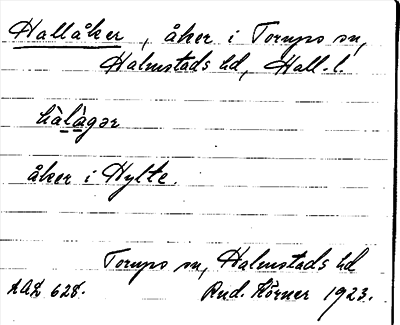 Hallåker, åker i Torups sn,
Halmstads hd, Hall. l.
hàlàgər
åker i Hylte.
Torups sn, Halmstads hd
LAL 628. Rud. Körner 1923.